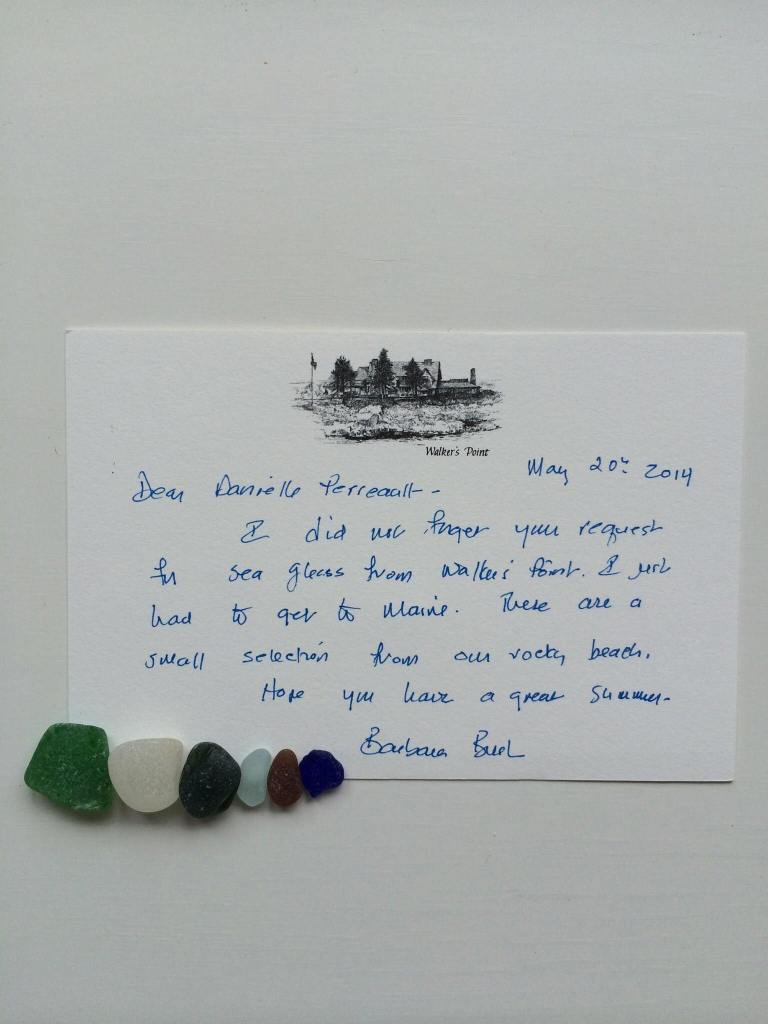 Walker's Point
May 20th 2014
Dear Danielle Perreault -
I did not forget your request
for sea glass from Walker's Point. I just
had to get to Maine. These are a
small selection from our rocky beach.
Hope you have a great summer -
Barbara Bush